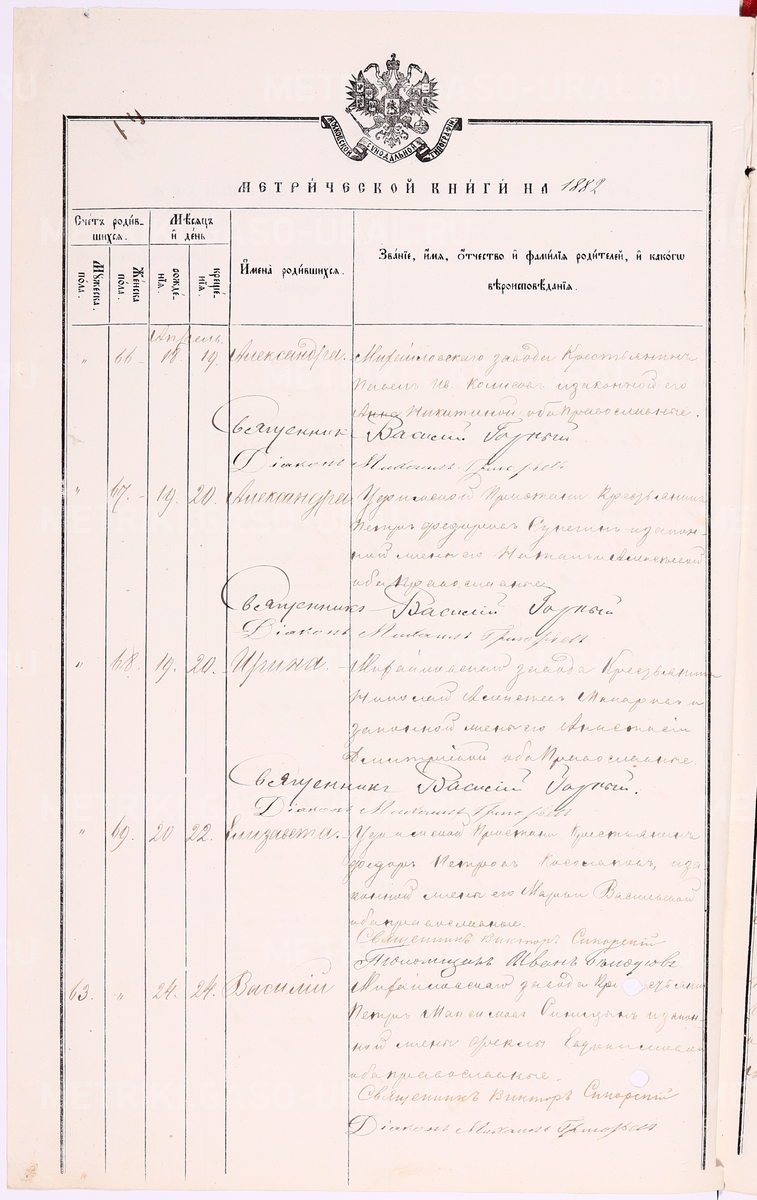 МОСКОВСКОЙ СѴНОДАЛЬНОЙ ТИПОГРАФІИ
МЕТРИ́ЧЕСКОЙ КНИ́ГИ НА 1882
Сче́тъ роди́вшихся.
Мѣ́сяцъ и҆ де́нь
И҆мена̀ роди́вшихся.
Зва́нїе, и҆́мя, ѻ҆́тчество и҆ фами́лїя роди́телей, и҆ како́гѡ вѣроисповѣ́данїя.
Мꙋ́жеска по́ла.
Же́нска по́ла.
рожде́нїя.
креще́нїя.
Апрѣль
" 66 18 19. Александра. Михайловскаго завода Крестьянинъ
Павелъ Ив. и законной его
Анна Никитиной оба Православные.
Священникъ Василій Горный
Діаконъ Михаилъ Григорьевъ
" 67. 19. 20. Александра Уфимской Пристани Крестьянинъ
Петръ и закон-
ной жены его Алексѣевой
оба Православные
Священникъ Василій Горный
Діаконъ Михаилъ Григорьевъ
" 68. 19. 20. Ирина. Михайловскаго завода Крестьянинъ
Николай Алексѣевъ Макаровъ и
законной жены его Анастасіи
Дмитріевой оба Православные.
Священникъ Василій Горный.
Діаконъ Михаилъ Григорьевъ
" 69. 20 22. Елизавета. Уфимской Пристани Крестьянинъ
Федоръ Петровъ и за-
конной жены его Марьи Васильевой
оба православные.
Священникъ Викторъ Сикорскій
Псаломщикъ Иванъ
63. " 24. 24. Василій Михайловскаго завода
Петръ Максимовъ Синицынъ и закон-
ной жены Феклы
оба православные.
Священникъ Викторъ Сикорскій
Діаконъ Михаилъ Григорьевъ